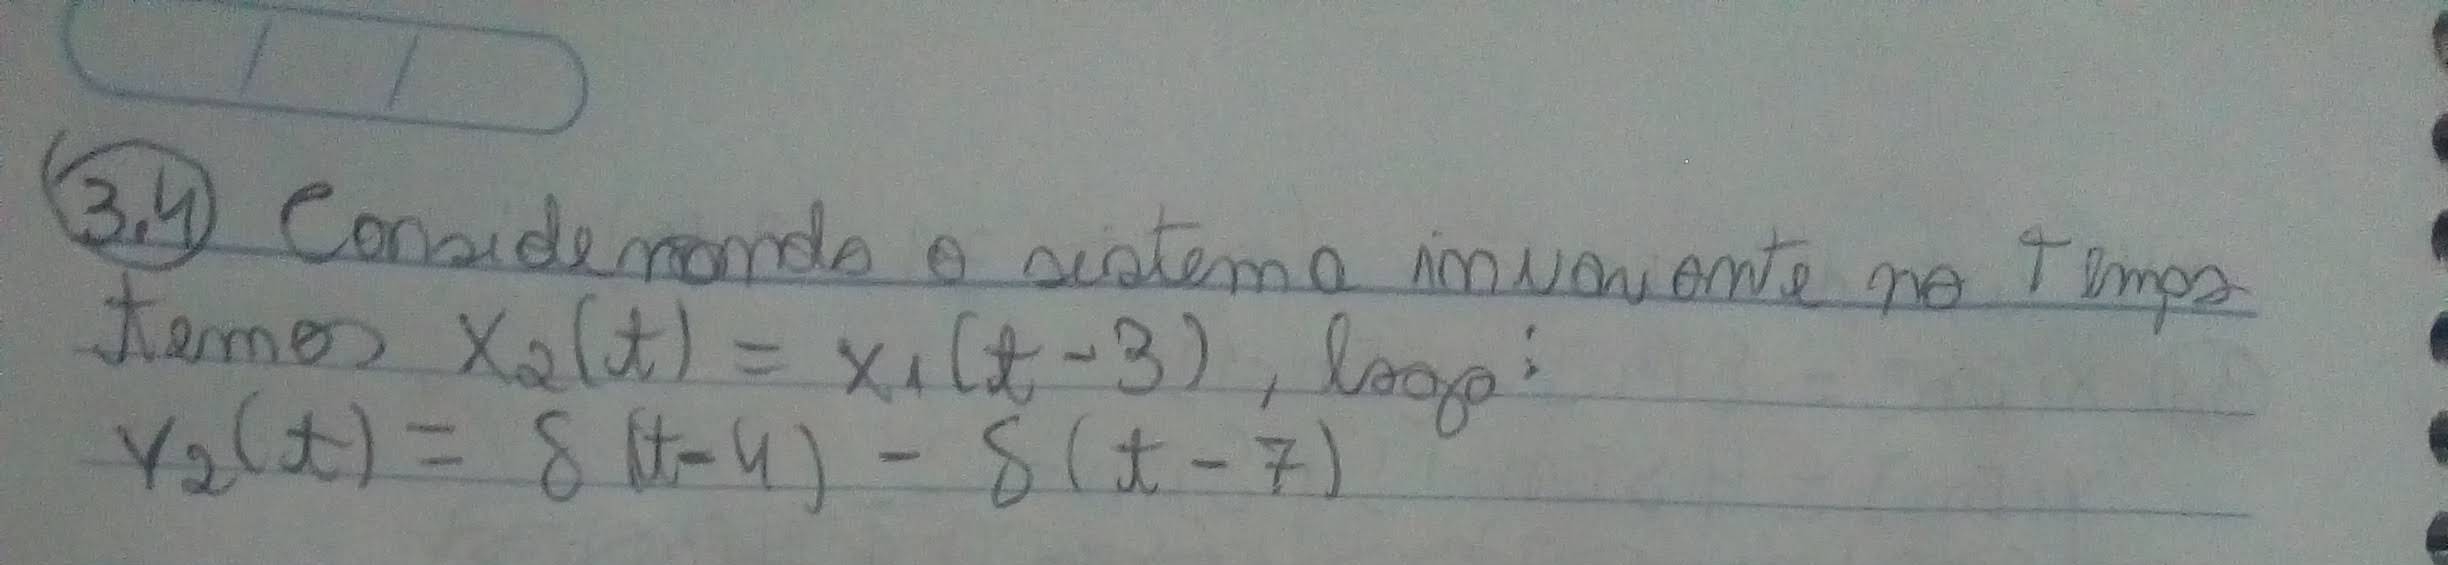 3.4 Considerando o sistema invariante no tempo
temos x₂(t) = x₁(t-3), logo:
y₂(t) = δ(t-4) - δ(t-7)